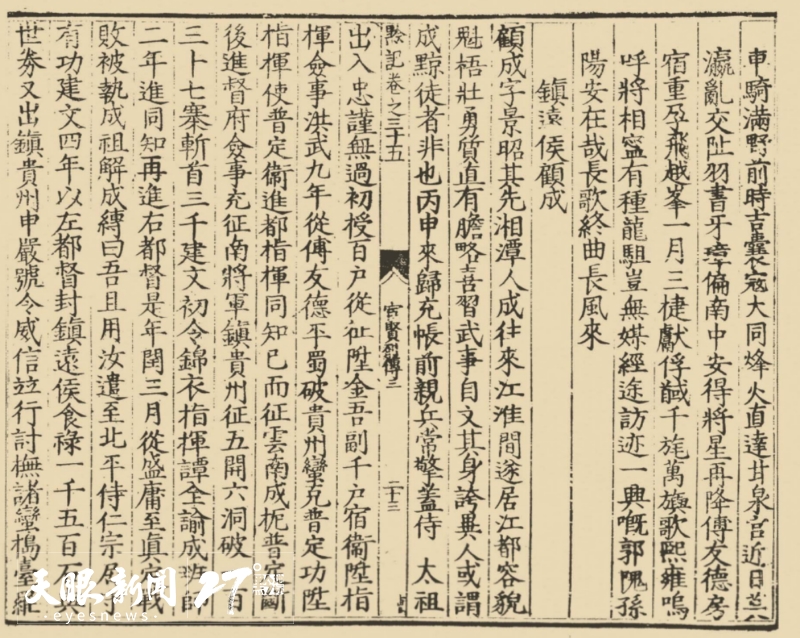 車騎滿野前時吉囊冦大同烽火直達甘泉宫近日八
瀛亂交阯羽書牙璋徧南中安得將星再降傅友德房
宿重孕飛越峯一月三捷獻俘馘千旄萬旗歌熙雍嗚
呼將相寧有種龍駔豈無媒經途訪迹一興嘅郭隗孫
陽安在哉長歌終曲長風來
鎮遠侯顧成
顧成字景昭其先湘潭人成往來江淮間遂居江都容貌
魁梧壯勇質直有膽略喜習武事自文其身誇異人或謂
成黥徒者非也丙申來歸充帳前親兵常擎蓋侍 太祖
黔記卷之三十五 宦賢列傳三 二十三
出入忠謹無過初授百户從征陞金吾副千户宿衞陞指
揮僉事洪武九年從傅友德平蜀破貴州蠻克普定功陞
指揮使普定衞進都指揮同知已而征雲南成扼普定斷
後進督府僉事充征南將軍鎮貴州征五開六洞破百
三十七寨斬首三千建文初令錦衣指揮譚全諭成班師
二年進同知再進右都督是年閏三月從盛庸至眞定戰
敗被執成祖解成縛曰吾且用汝遣至北平侍仁宗居
有功建文四年以左都督封鎮遠侯食祿一千五百石
世劵又出鎮貴州申嚴號令威信竝行討撫諸蠻檮臺紅
天眼新闻
eyesnews
27°